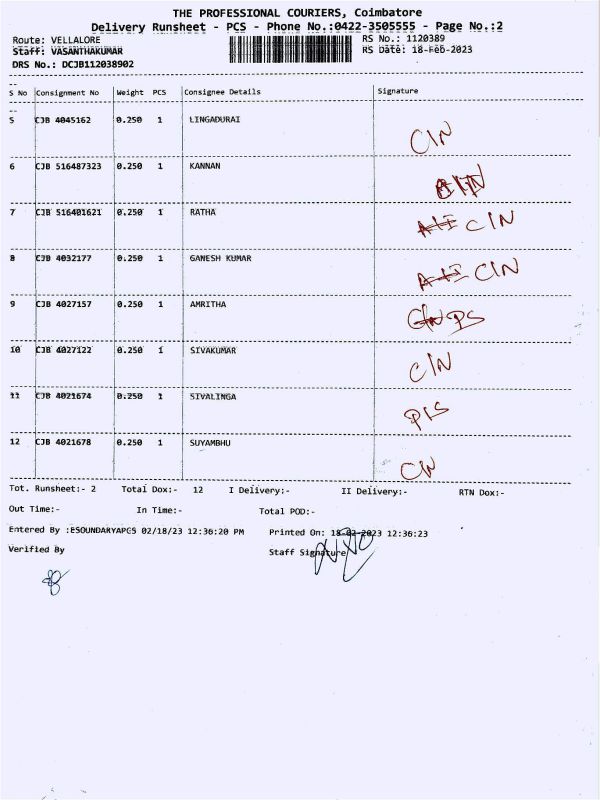 THE PROFESSIONAL COURIERS, Coimbatore
Delivery Runsheet - PCS - Phone No.:0422-3505555 - Page No.:2
Route: VELLALORE RS No.: 1120389
Staff: VASANTHAKUMAR RS Date: 18-Feb-2023
DRS No.: DCJB112038902
S No Consignment No Weight PCS Consignee Details Signature
5 CJB 4045162 0.250 1 LINGADURAI CIN
6 CJB 516487323 0.250 1 KANNAN
7 CJB 516401621 0.250 1 RATHA CIN
8 CJB 4032177 0.250 1 GANESH KUMAR CIN
9 CJB 4027157 0.250 1 AMRITHA PS
10 CJB 4027122 0.250 1 SIVAKUMAR CIN
11 CJB 4021674 0.250 1 SIVALINGA PIS
12 CJB 4021678 0.250 1 SUYAMBHU
Tot. Runsheet:- 2 Total Dox:- 12 I Delivery:- II Delivery:- RTN Dox:-
Out Time:- In Time:- Total POD:-
Entered By :ESOUNDARYAPCS 02/18/23 12:36:20 PM Printed On: 18-02-2023 12:36:23
Verified By Staff Signature